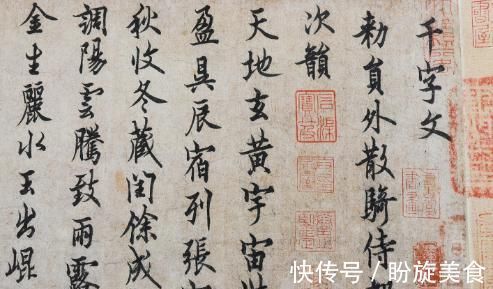 千字文
勅員外散騎侍
次韻
天地玄黃宇宙
盈昃辰宿列張
秋收冬藏閏餘成
調陽雲騰致雨露
金生麗水玉出崐
快传号 / 盼旋美食